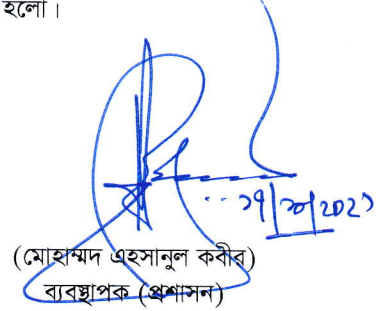 হলো।
১৭/১০/২০২১
(মোহাম্মদ এহসানুল কবীর)
ব্যবস্থাপক (প্রশাসন)